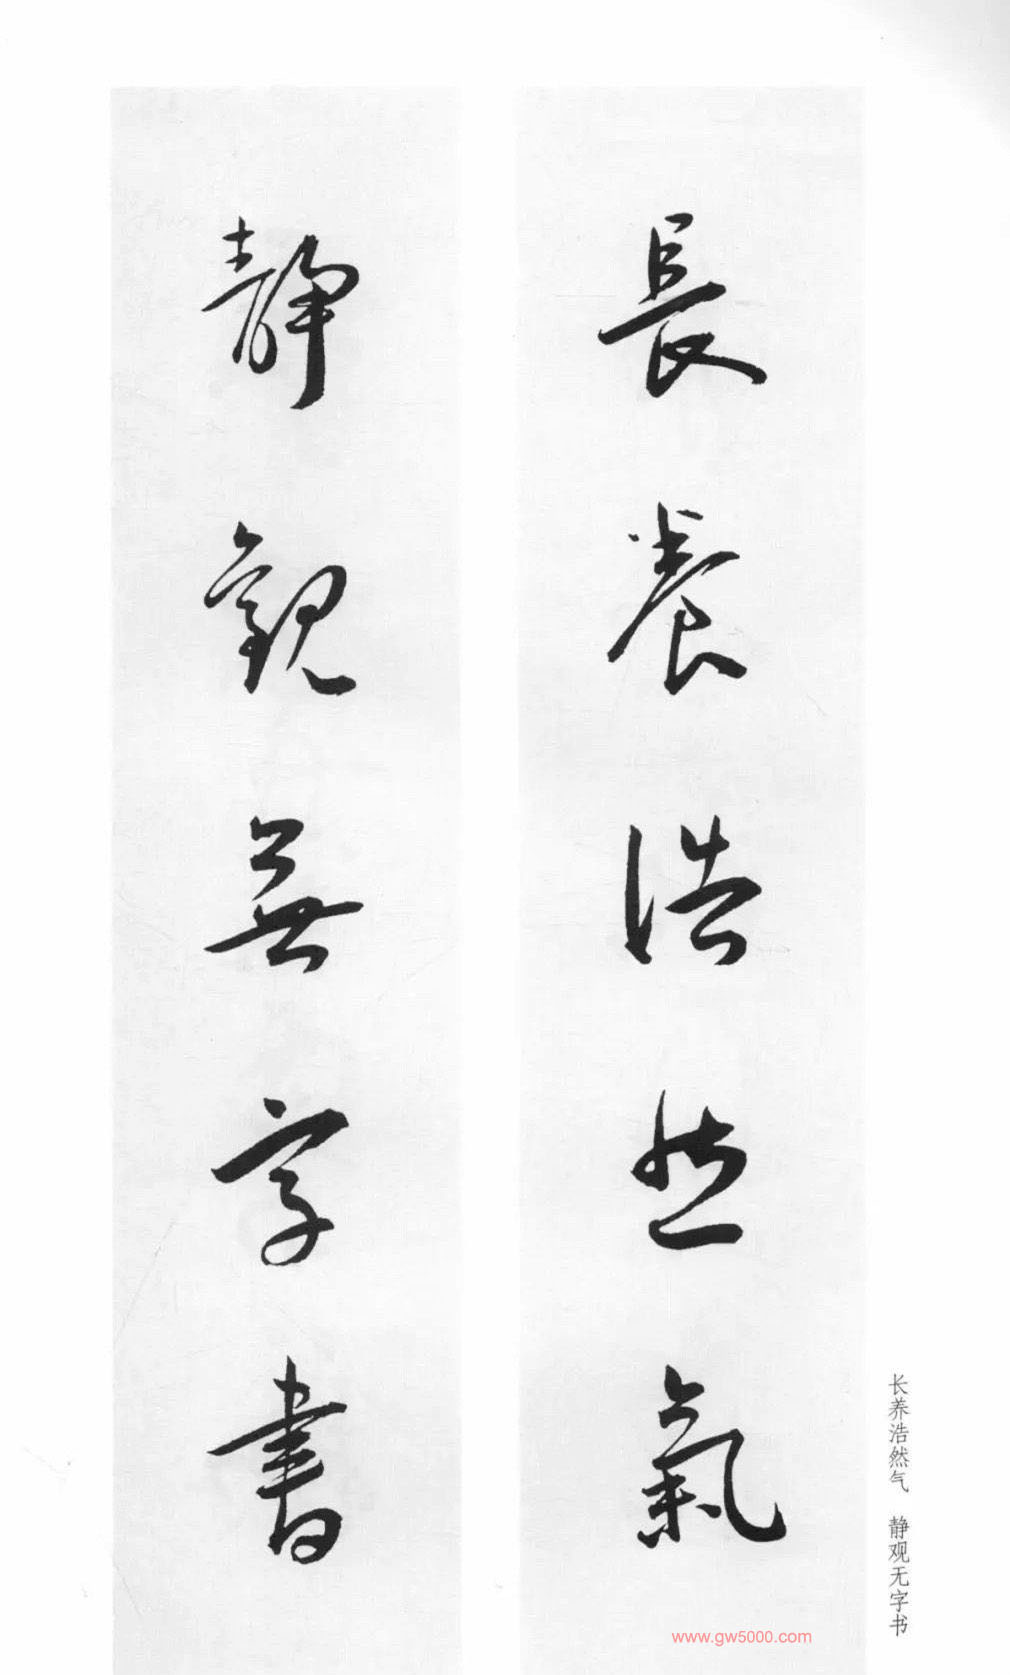 長養浩然氣
靜觀無字書
长养浩然气 静观无字书
www.gw5000.com